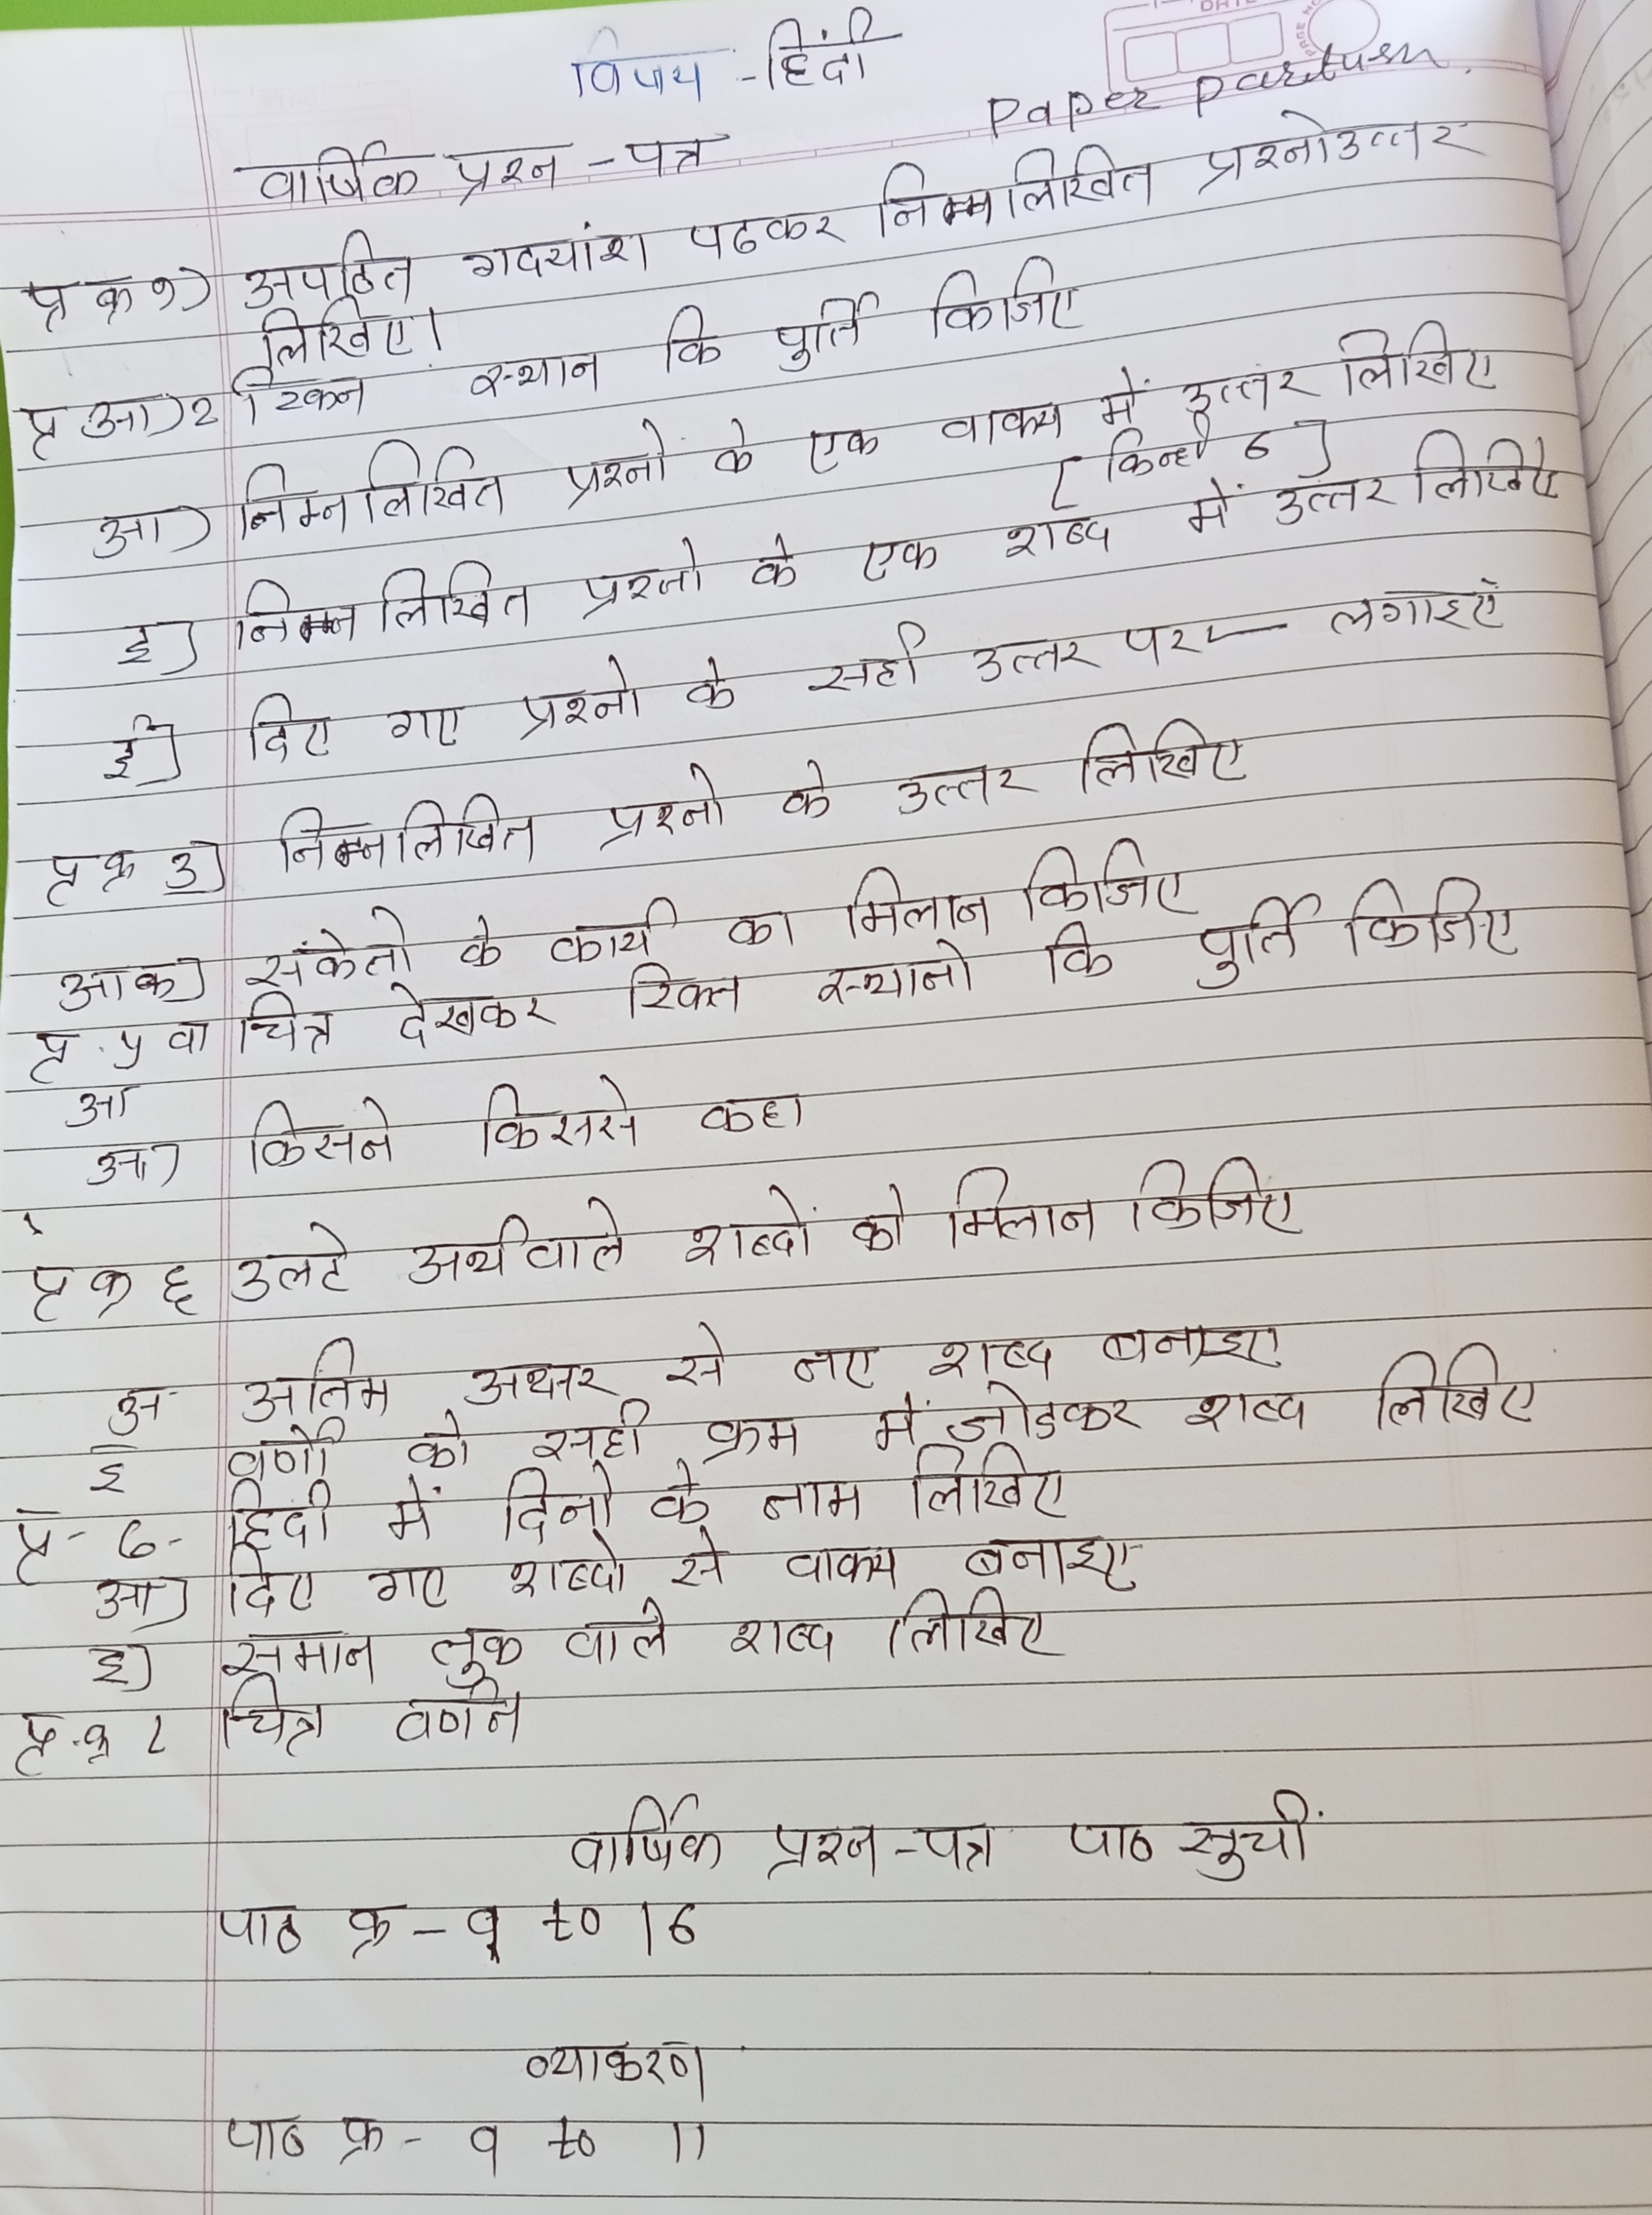 विषय - हिंदी
Paper partusn.
वार्षिक प्रश्न - पत्र
प्र क्र १) अपठित गदयांश पढकर निम्नलिखित प्रश्नोउत्तर
लिखिए।
प्र आ) २ रिक्त स्थान कि पुर्ति किजिए
आ) निम्नलिखित प्रश्नों के एक वाक्य में उत्तर लिखिए
[ किन्ही 6 ]
इ] निम्नलिखित प्रश्नो के एक शब्द में उत्तर लिखिए
ई] दिए गए प्रश्नो के सही उत्तर पर ✓ लगाइएँ
प्र क्र 3] निम्नलिखित प्रश्नो के उत्तर लिखिए
आक] संकेतो के कार्य का मिलान किजिए
प्र. ५ वा चित्र देखकर रिक्त स्थानो कि पुर्ति किजिए
आ
आ) किसने किससे कहा
प्र क्र ६ उलटे अर्थवाले शब्दों को मिलान किजिए
अ अंतिम अक्षर से नए शब्द बनाइए
इ वर्णो को सही क्रम में जोडकर शब्द लिखिए
प्र - ७ - हिंदी में दिनो के नाम लिखिए
आ] दिए गए शब्दो से वाक्य बनाइए
इ) समान तुक वाले शब्द लिखिए
प्र.क्र ८ चित्र वर्णन
वार्षिक प्रश्न - पत्र पाठ सुचीं
पाठ क्र - १ to 16
व्याकरण
पाठ क्र - १ to 11